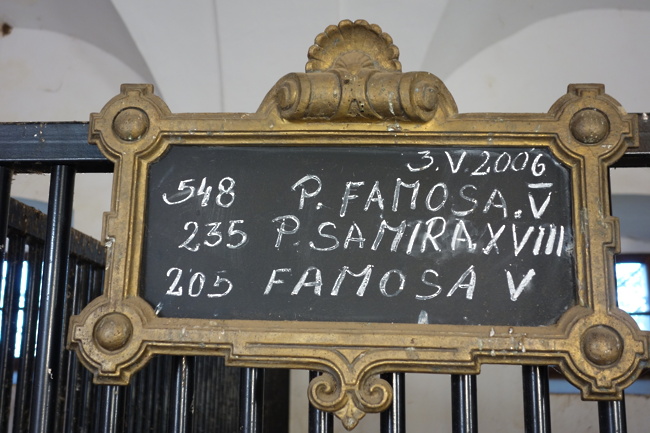 3.V.2006
548 P. FAMOSA. V
235 P. SAMIRA XVIII
205 FAMOSA V